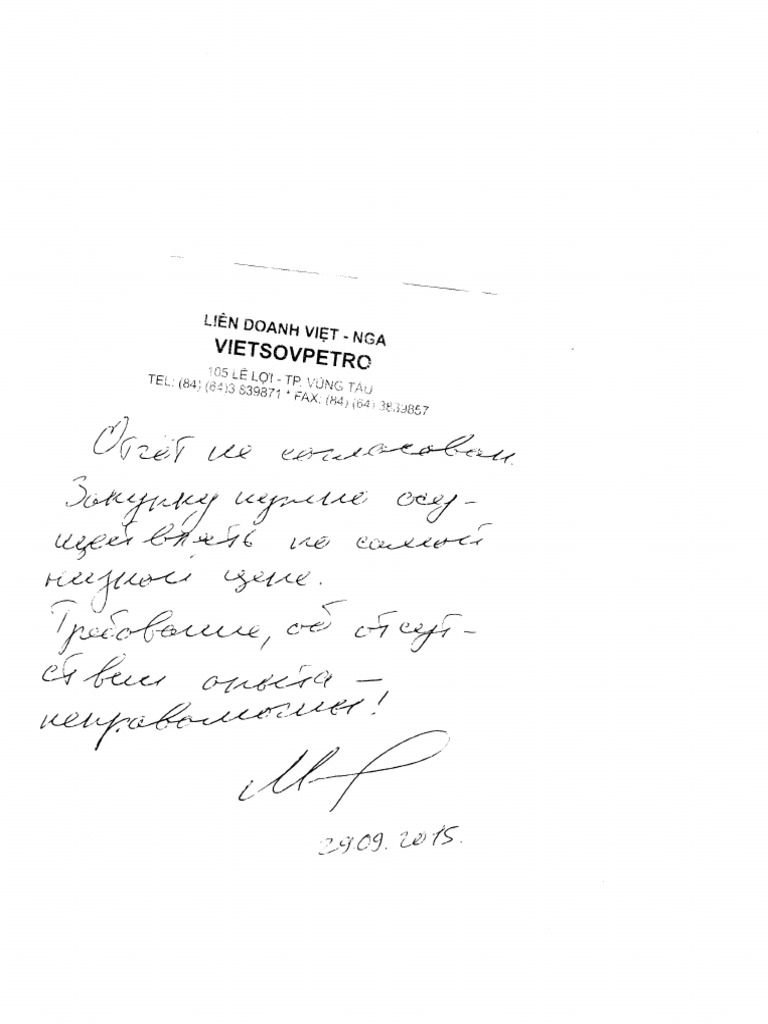 LIÊN DOANH VIỆT - NGA
VIETSOVPETRO
105 LÊ LỢI - TP. VŨNG TÀU
TEL: (84) (64)3 839871 * FAX: (84) (64) 3839857
Отчёт не согласован.
Закупку нужно осу-
ществлять по самой
низкой цене.
Требование, об отсут-
ствии опыта –
неправомочны!
29.09.2015.